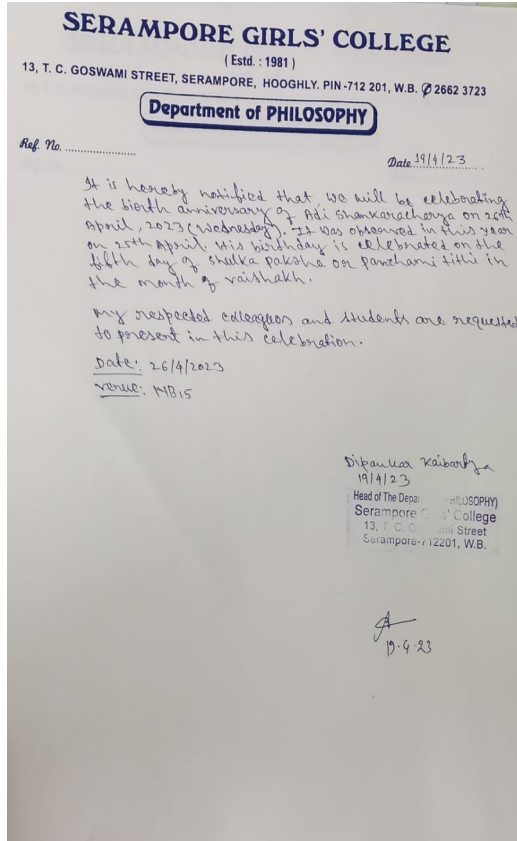 SERAMPORE GIRLS' COLLEGE
( Estd. : 1981 )
13, T. C. GOSWAMI STREET, SERAMPORE, HOOGHLY. PIN-712 201, W.B. ✆ 2662 3723
Department of PHILOSOPHY
Ref. No. ........................
Date 19/4/23
It is hereby notified that, we will be celebrating
the birth anniversary of Adi Shankaracharya on 26th
April, 2023 (Wednesday). It was observed in this year
on 25th April. His birthday is celebrated on the
fifth day of shulka paksha or panchami tithi in
the month of vaishakh.
My respected colleagues and students are requested
to present in this celebration.
Date: 26/4/2023
Venue: NB15
Dipankar Kaibartya
19/4/23
Head of The Depa PHILOSOPHY)
Serampore G s' College
13, T. C. G mi Street
Serampore-712201, W.B.
19.4.23